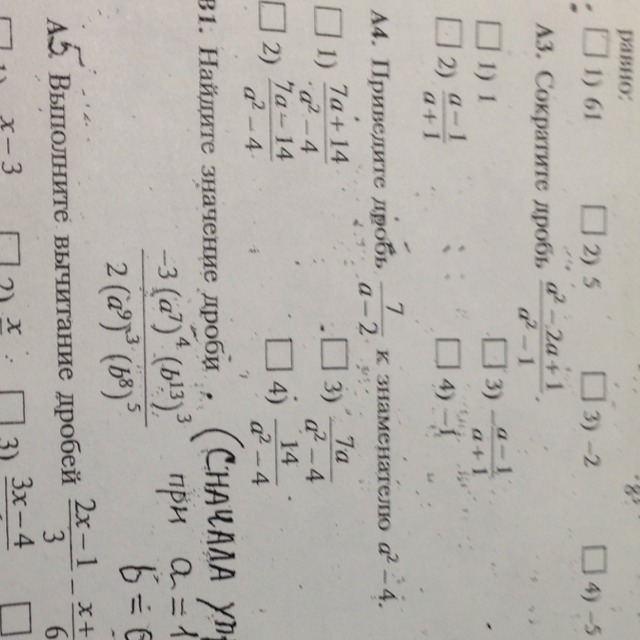 равно:
1) 61 2) 5 3) -2 4) -5
А3. Сократите дробь (a² - 2a + 1)/(a² - 1).
1) 1 3) -(a - 1)/(a + 1)
2) (a - 1)/(a + 1) 4) -1
А4. Приведите дробь 7/(a - 2) к знаменателю a² - 4.
1) (7a + 14)/(a² - 4) 3) 7a/(a² - 4)
2) (7a - 14)/(a² - 4) 4) 14/(a² - 4)
В1. Найдите значение дроби. (СНАЧАЛА
-3(a⁷)⁴ · (b¹³)³/(2(a⁹)³ · (b⁸)⁵) при a =
b =
А5. Выполните вычитание дробей (2x - 1)/3 -
1) x - 3 2) 3) (3x - 4)/6